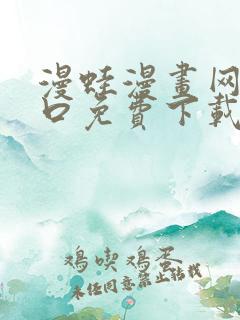 漫蛙漫畫网
口免費下載
鳴喫鳴蛋
未经同意禁止转载